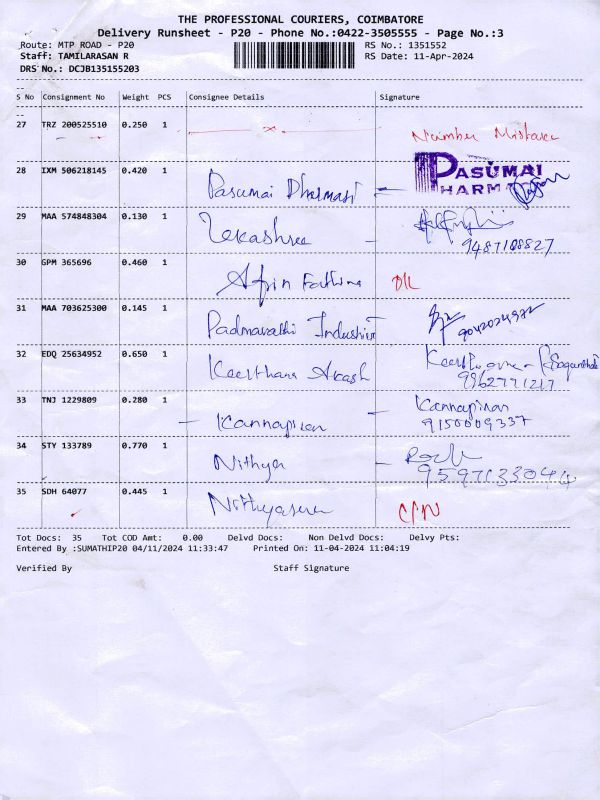 THE PROFESSIONAL COURIERS, COIMBATORE
Delivery Runsheet - P20 - Phone No.:0422-3505555 - Page No.:3
Route: MTP ROAD - P20 RS No.: 1351552
Staff: TAMILARASAN R RS Date: 11-Apr-2024
DRS No.: DCJB135155203
S No Consignment No Weight PCS Consignee Details Signature
27 TRZ 200525510 0.250 1 Number Mistake
28 IXM 506218145 0.420 1 Pasumai Pharmacy PASUMAI PHARMA
29 MAA 574848304 0.130 1 Lekashree
9487108827
30 GPM 365696 0.460 1 Afrin Fathima DL
31 MAA 703625300 0.145 1 Padmavathi 9042024972
32 EDQ 25634952 0.650 1 Keerthana Akash
9962771217
33 TNJ 1229809 0.280 1 Kannapiran Kannapiran
9150009337
34 STY 133789 0.770 1 Nithya
35 SDH 64077 0.445 1
Tot Docs: 35 Tot COD Amt: 0.00 Delvd Docs: Non Delvd Docs: Delvy Pts:
Entered By :SUMATHIP20 04/11/2024 11:33:47 Printed On: 11-04-2024 11:04:19
Verified By Staff Signature